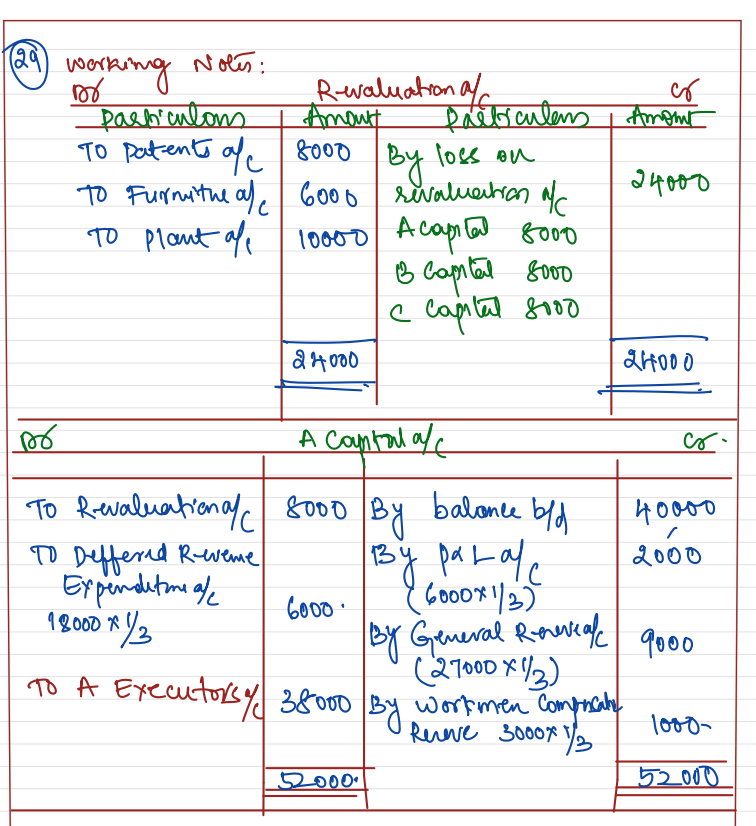 29 Working Notes:
Dr Revaluation a/c Cr
Particulars Amount Particulars Amount
To Patents a/c 8000 By loss on
To Furniture a/c 6000 revaluation a/c 24000
To Plant a/c 10000 A capital 8000
B Capital 8000
C Capital 8000
24000 24000
Dr A Capital a/c Cr.
To Revaluation a/c 8000 By balance b/d 40000
To Deffered Revenue By P&L a/c 2000
Expenditure a/c 6000. (6000×1/3)
18000×1/3 By General Reserve a/c 9000
(27000×1/3)
To A Executors a/c 38000 By Workmen
Reserve 3000×1/3 1000-
52000. 52000